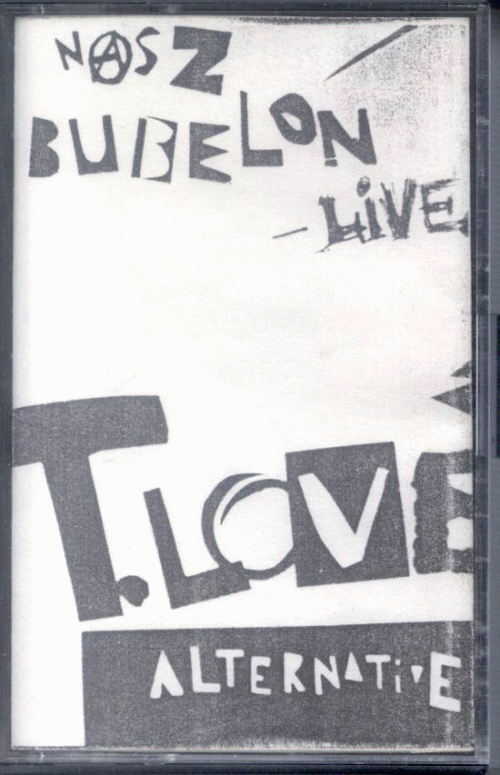 NASZ
BUBELON
- LIVE
T.LOVE
ALTERNATIVE